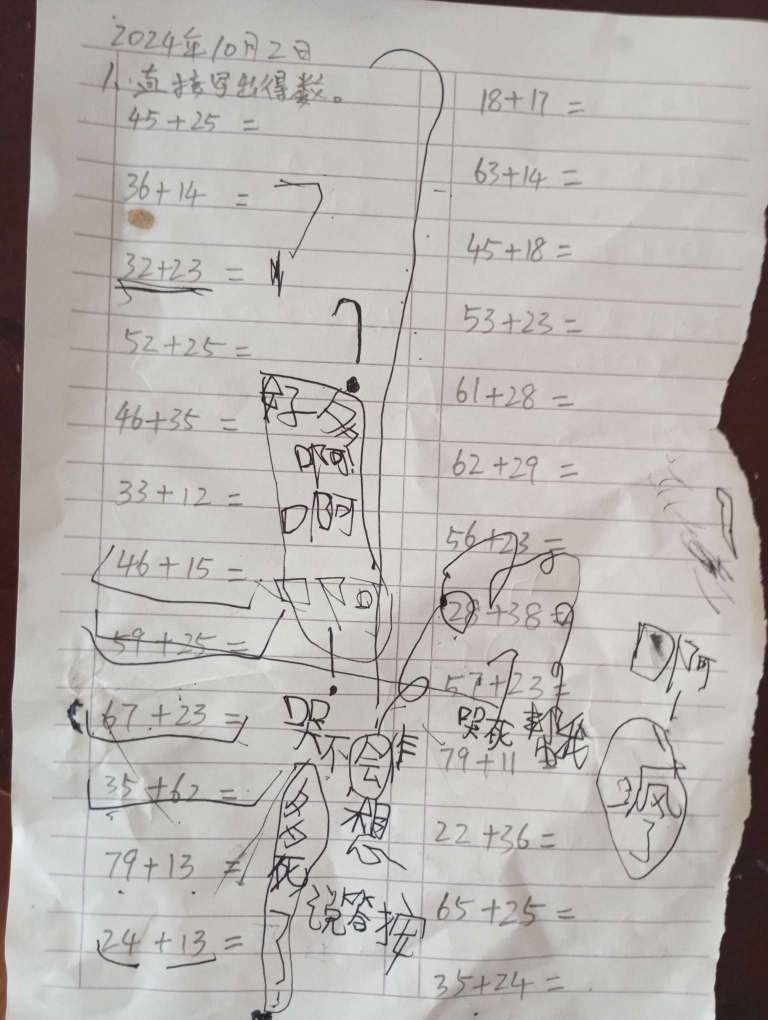 2024年10月2日
1、直接写出得数。
45+25=
36+14=
32+23=
52+25=
46+35=
33+12=
46+15=
59+25=
67+23=
35+62=
79+13=
24+13=
18+17=
63+14=
45+18=
53+23=
61+28=
62+29=
56+23=
28+38=
57+23=
79+11
22+36=
65+25=
35+24=
多
啊!
啊
哭不会
想
多
死
说答按
哭死
啊!
疯
了